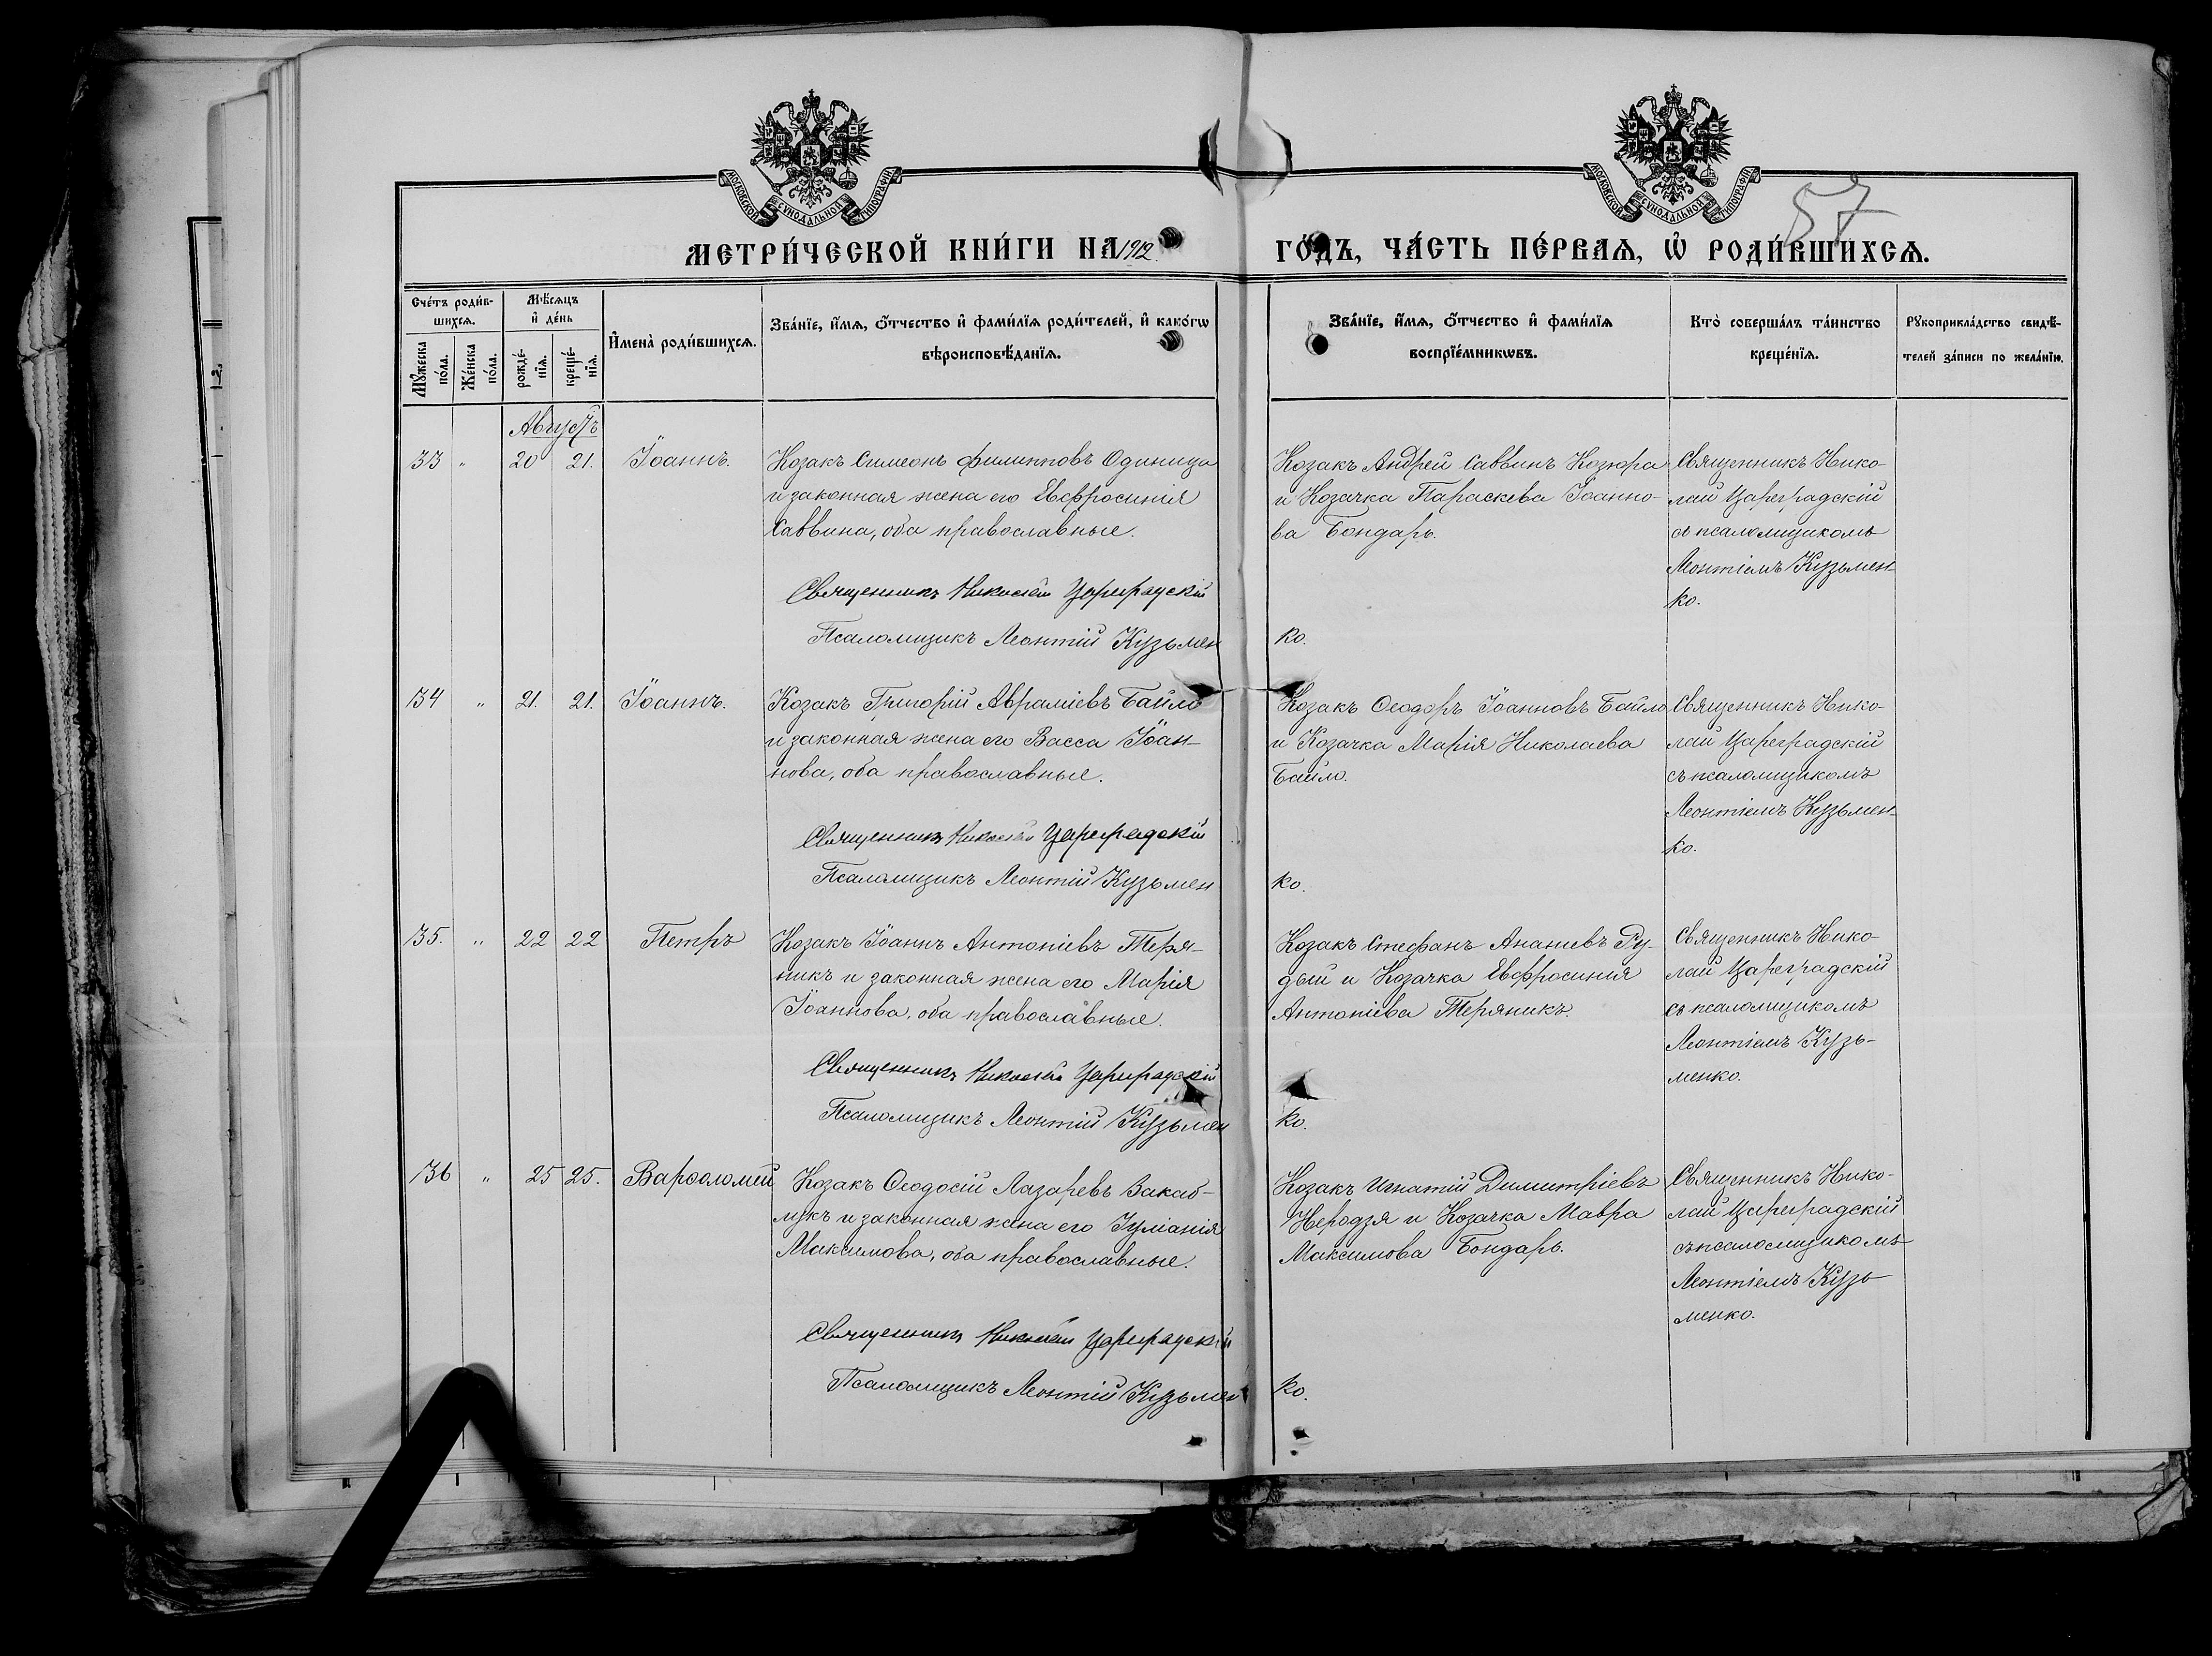 МОСКОВСКОЙ СУНОДАЛЬНОЙ ТИПОГРАФІИ
МОСКОВСКОЙ СУНОДАЛЬНОЙ ТИПОГРАФІИ
57
МЕТРИ́ЧЕСКОЙ КНИ́ГИ НА 1912
ГО́ДЪ, ЧА́СТЬ ПЕ́РВАѦ, Ѡ҆ РОДИ́ВШИХСѦ.
Сче́тъ роди́в-
шихсѧ.
Мꙋ́жеска по́ла.
Же́нска по́ла.
Мѣ́сѧцъ
и҆ де́нь
рожде́-
нїѧ.
креще́-
нїѧ.
И҆мена̀ роди́вшихсѧ.
Зва́нїе, и҆́мѧ, ѻ҆́тчество и҆ фами́лїѧ роди́телей, и҆ како́гѡ
вѣроисповѣ́данїѧ.
Зва́нїе, и҆́мѧ, ѻ҆́тчество и҆ фами́лїѧ
воспрїе́мникѡвъ.
Кто̀ соверша́лъ та́инство
креще́нїѧ.
Рꙋкоприкла́дство свидѣ́-
телей за́писи по жела́нїю.
Августъ
33 " 20 21. Іоаннъ.
Козакъ Симеонъ Филипповъ Одиница
и законная жена его Евфросинія
Саввина, оба православные.
Священникъ Николай Цареградскій
Псаломщикъ Леонтій Кузьмен
Козакъ Андрей Саввинъ Козюра
и Козачка Параскева Іоанно-
ва Бондарь.
ко.
Священникъ Нико-
лай Цареградскій
съ псаломщикомъ
Леонтіемъ Кузьмен-
ко.
34 " 21. 21. Іоаннъ.
Козакъ Григорій Авраміевъ Байло
и законная жена его Васса Іоан-
нова, оба православные.
Священникъ Николай Цареградскій
Псаломщикъ Леонтій Кузьмен
Козакъ Ѳеодоръ Іоанновъ Байло
и Козачка Марія Николаева
Байло.
ко.
Священникъ Нико-
лай Цареградскій
съ псаломщикомъ
Леонтіемъ Кузьмен-
ко.
35. " 22 22 Петръ
Козакъ Іоаннъ Антоніевъ Теря-
никъ и законная жена его Марія
Іоаннова, оба православные.
Священникъ Николай Цареградскій
Псаломщикъ Леонтій Кузьмен
Козакъ Стефанъ Ананіевъ Ру-
дый и Козачка Евфросинія
Антоніева Теряникъ.
ко.
Священникъ Нико-
лай Цареградскій
съ псаломщикомъ
Леонтіемъ Кузь-
менко.
36 " 25 25. Варѳоломей
Козакъ Ѳеодосій Лазаревъ
и законная жена его Іуліанія
Максимова, оба православные.
Священникъ Николай Цареградскій
Псаломщикъ Леонтій Кузьмен
Козакъ Игнатій Димитріевъ
Неродзя и Козачка Мавра
Максимова Бондарь.
ко.
Священникъ Нико-
лай Цареградскій
съ псаломщикомъ
Леонтіемъ Кузь
менко.